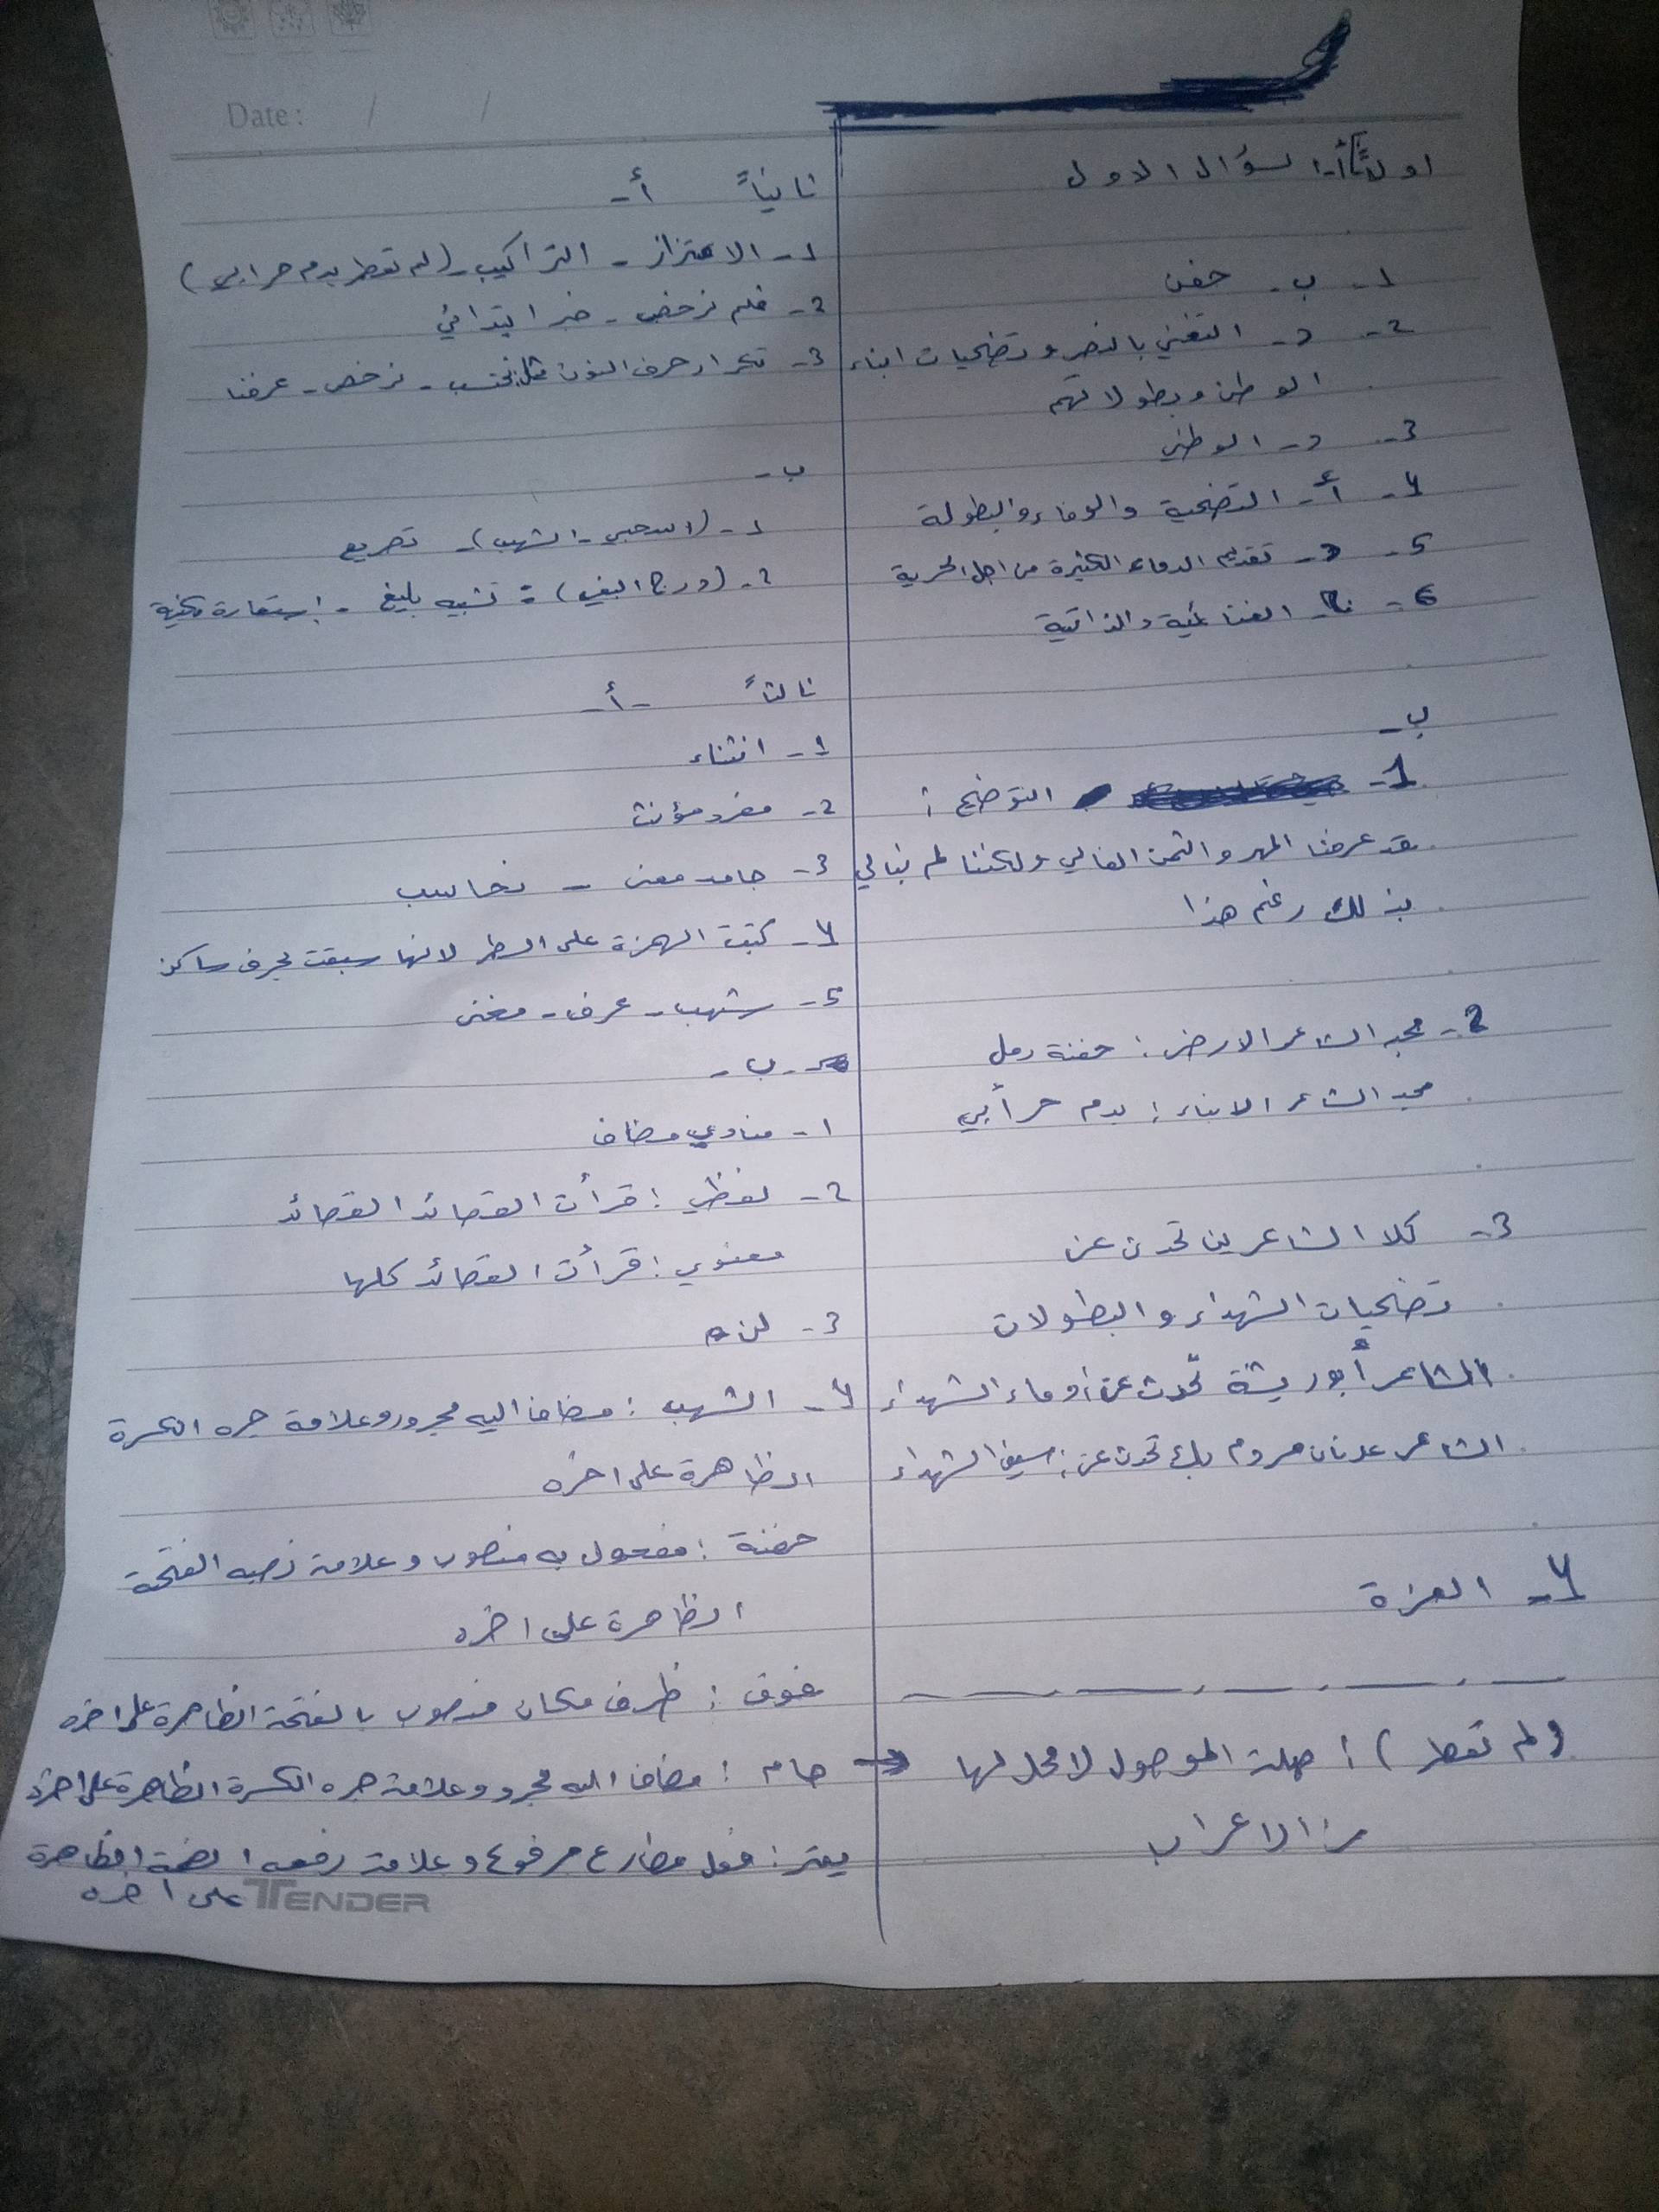 Date: / /
اولاً أ- السؤال الاول
1- ب- حفن
2- د- التغني بالنصر وتضحيات ابناء
الوطن وبطولاتهم
3- د- الوطني
4- أ- التضحية والوفاء والبطولة
5- د- تقديم الدماء الكثيرة من اجل الحرية
6- الغنائية والذاتية
ب-
1- التوضيح :
لقد عرفنا المهر والثمن الغالي ولكننا لم نبالي
بذلك رغم هذا
2- مجد الشاعر الارض : حفنة رمل
مجد الشاعر الابناء : بدم حر أبي
3- كلا الشاعرين تحدث عن
تضحيات الشهداء والبطولات
الشاعر أبو ريشة تحدث عن : دماء الشهداء
الشاعر عدنان مروم بك تحدث عن : سيف الشهداء
4- العزة
(لم تعطر) : صلة الموصول لا محل لها
من الاعراب
ثانياً أ-
1- الاعتزاز - التراكيب - (لم تعطر بدم حر ابي)
2- فلم نرخص - خبر ابتدائي
3- تكرار حرف النون مثل نحتسب - نرخص - عرفنا
ب-
1- (اسحبي - الشهب) - تصريع
2- (درج البغي) : تشبيه بليغ - إستعارة مكنية
ثالثاً - أ-
1- انثناء
2- مفرد مؤنث
3- جامد معنى - نحاسب
4- كتبت الهمزة على السطر لانها سبقت بحرف ساكن
5- شهب - عرف - مغنى
ب-
1- منادى مضاف
2- لفظي : قرأت القصائد القصائد
معنوي : قرأت القصائد كلها
3- لن
4- الشهب : مضاف اليه مجرور وعلامة جره الكسرة
الظاهرة على اخره
حفنة : مفعول به منصوب وعلامة نصبه الفتحة
الظاهرة على اخره
فوق : ظرف مكان منصوب بالفتحة الظاهرة على اخره
هام : مضاف اليه مجرور وعلامة جره الكسرة الظاهرة على اخره
يعتر : فعل مضارع مرفوع وعلامة رفعه الضمة الظاهرة
على اخره
TENDER